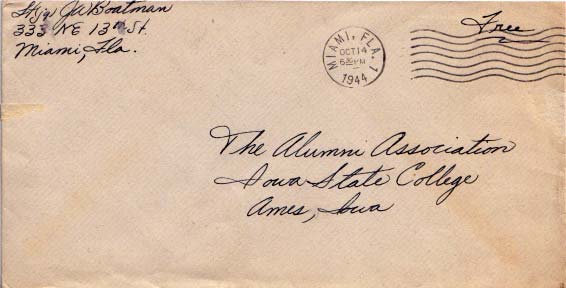 Lt(jg) JW Boatman
333 NE 13th St.
Miami, Fla.
MIAMI, FLA. 1
OCT 14
6 PM
1944
Free
The Alumni Association
Iowa State College
Ames, Iowa